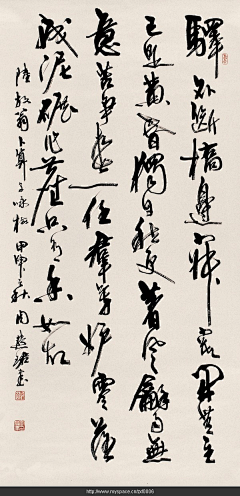 驛外斷橋邊寂寞開無主
已是黃昏獨自愁更著風和雨無
意苦爭春一任群芳妒零落
成泥碾作塵只有香如故
陸放翁卜算子詠梅甲申秋周
www.myspace.cn/pd0836